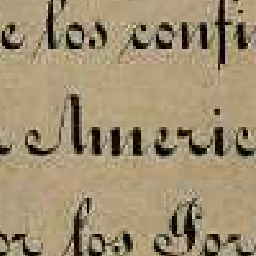 e los confi
a Americ
or los Por